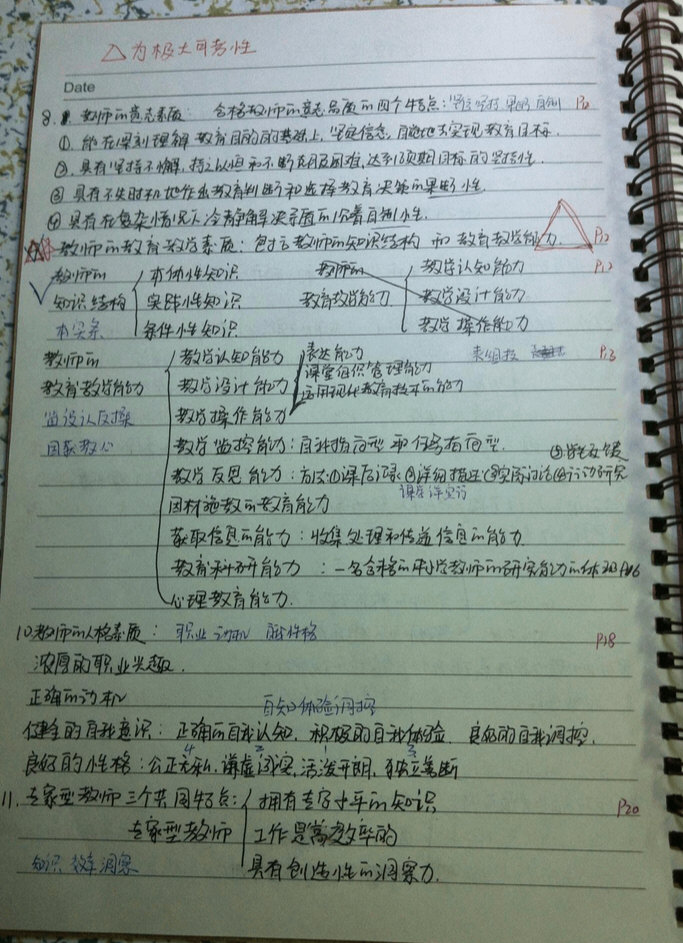 △为极大可考性
Date
8. 教师的意志素质: 合格教师的意志品质的四个特点: 坚定 坚持 果断 自制
①. 能在深刻理解教育目的的基础上, 坚定信念, 自觉地去实现教育目标.
②. 具有坚持不懈, 持之以恒和不断克服困难, 达到预期目标的坚持性.
③ 具有不失时机地作出教育判断和选择教育决策的果断性.
④ 具有在复杂情况下冷静解决矛盾的沉着自制性.
教师的教育教学素质: 包括教师的知识结构和教育教学能力. P12
教师的 本体性知识 教师的 教学认知能力 P12
知识结构 实践性知识 教育教学能力 教学设计能力
本实条 条件性知识 教学操作能力
教师的 教学认知能力 表达能力 表组技 P13
教育教学能力 教学设计能力 课堂组织管理能力
监设认反操 教学操作能力 运用现代教育技术的能力
因获教心 教学监控能力: 自我指向型和任务指向型.
教学反思能力: 方法①课后记录②详细描述③实际讨论④行动研究
因材施教的教育能力
获取信息的能力: 收集处理和传递信息的能力
教育科研能力: 一名合格的中小学教师的研究能力的体现 P16
心理教育能力.
10. 教师的人格素质: 职业 动机 性格 P18
浓厚的职业兴趣.
正确的动机
自知 体验 调控
健全的自我意识: 正确的自我认知、积极的自我体验、良好的自我调控.
良好的性格: 公正无私, 谦虚诚实, 活泼开朗, 独立善断
4 2 1 3
11. 专家型教师三个共同特点: 拥有专家水平的知识 P20
专家型教师 工作是高效率的
知识 效率 洞察 具有创造性的洞察力.